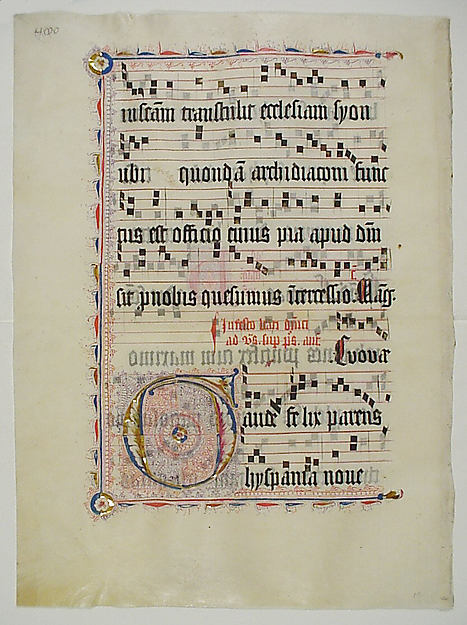 4000
iuscām transtulit ecclesiam syon
ubi quondā archidiaconi func
tus est officio cuius pia apud dūm
sit pnobis quesumus ītercessio. Mag.
In festo
ad vs. sup ps. ant.
Evovae
Gaude felix parens
hyspania noue